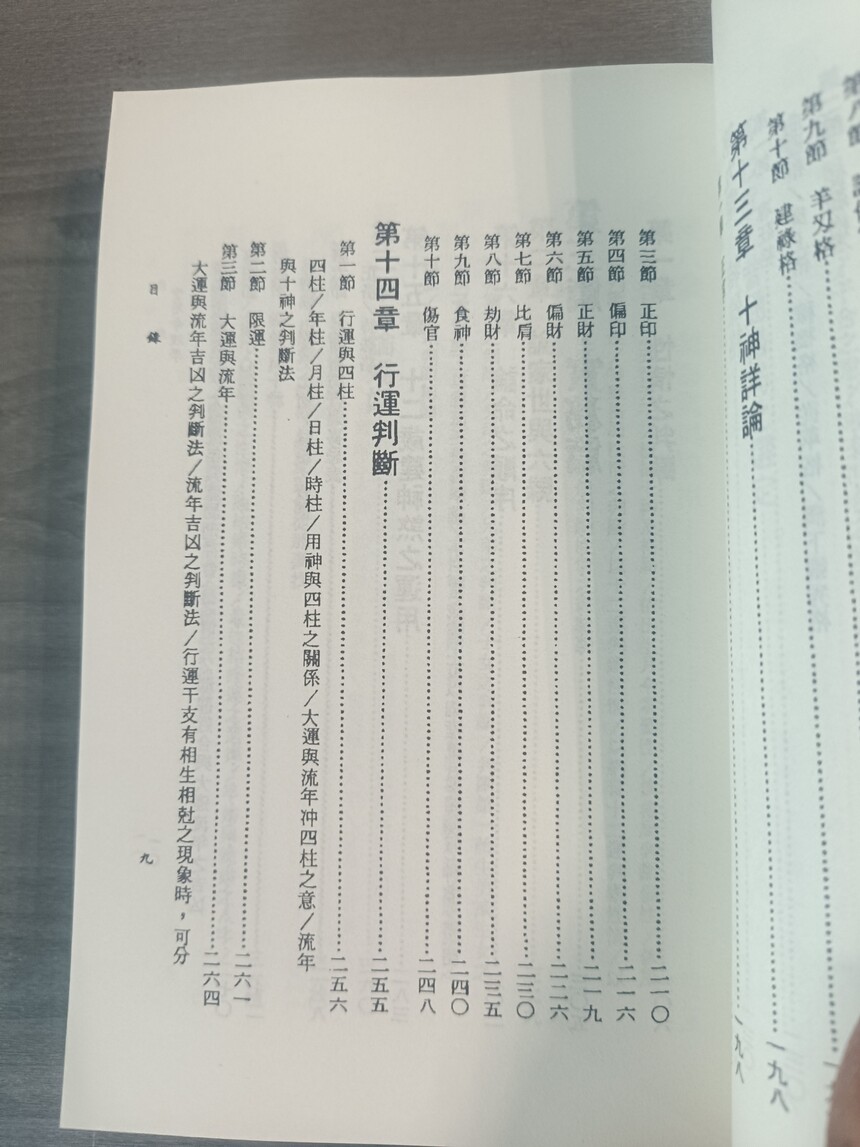 第九節　羊刄格
第十節　建祿格⋯⋯一九八
第十三章　十神詳論⋯⋯一九八
第三節　正印⋯⋯二一〇
第四節　偏印⋯⋯二一六
第五節　正財⋯⋯二一九
第六節　偏財⋯⋯二二六
第七節　比肩⋯⋯二三〇
第八節　劫財⋯⋯二三五
第九節　食神⋯⋯二四〇
第十節　傷官⋯⋯二四八
第十四章　行運判斷⋯⋯二五五
第一節　行運與四柱⋯⋯二五六
四柱／年柱／月柱／日柱／時柱／用神與四柱之關係／大運與流年冲四柱之意／流年
與十神之判斷法
第二節　限運⋯⋯二六一
第三節　大運與流年⋯⋯二六四
大運與流年吉凶之判斷法／流年吉凶之判斷法／行運干支有相生相尅之現象時，可分
目錄
九